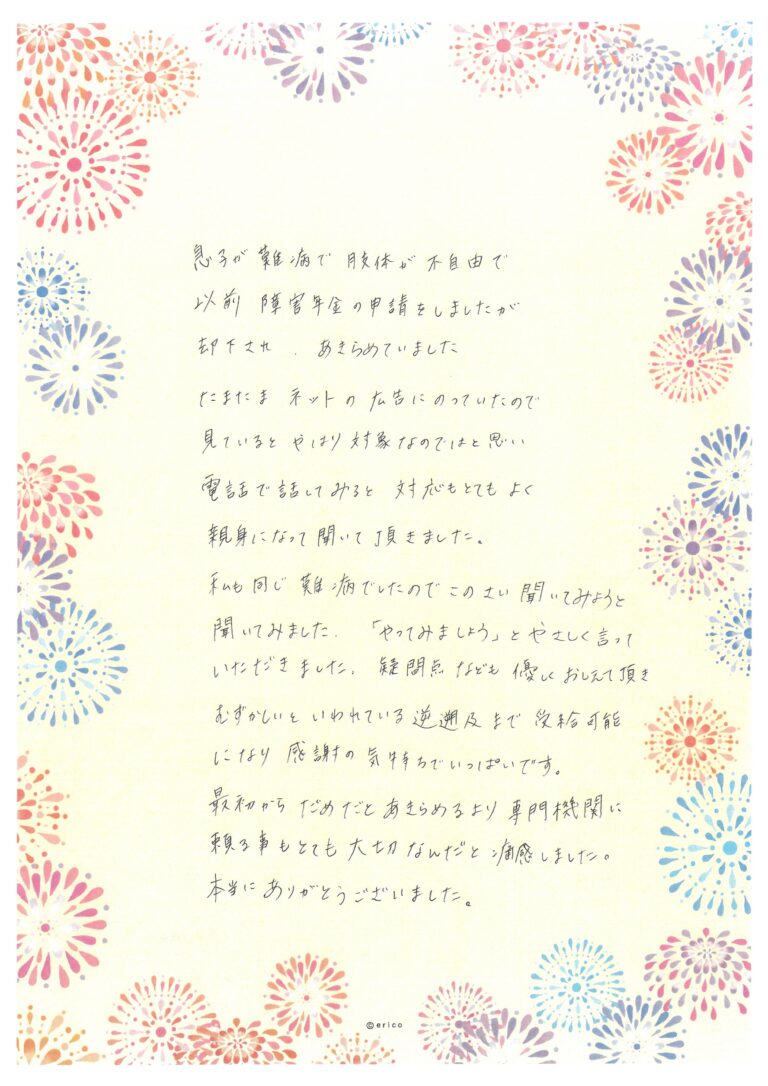 息子が 難病で 肢体が 不自由で
以前 障害年金の申請をしましたが
却下され、あきらめていました
たまたま ネットの 広告にのっていたので
見ていると やはり 対象なのではと思い
電話で話してみると 対応もとても よく
親身になって聞いて頂きました。
私も同じ 難病でしたので このさい 聞いてみようと
聞いてみました。「やってみましょう」と やさしく言って
いただきました。疑問点なども 優しくおしえて頂き
むずかしいと いわれている 逆遡及まで 受給可能
になり 感謝の気持ちでいっぱいです。
最初から だめだと あきらめるより 専門機関に
頼る事もとても 大切なんだと 痛感しました。
本当に ありがとうございました。
©erico